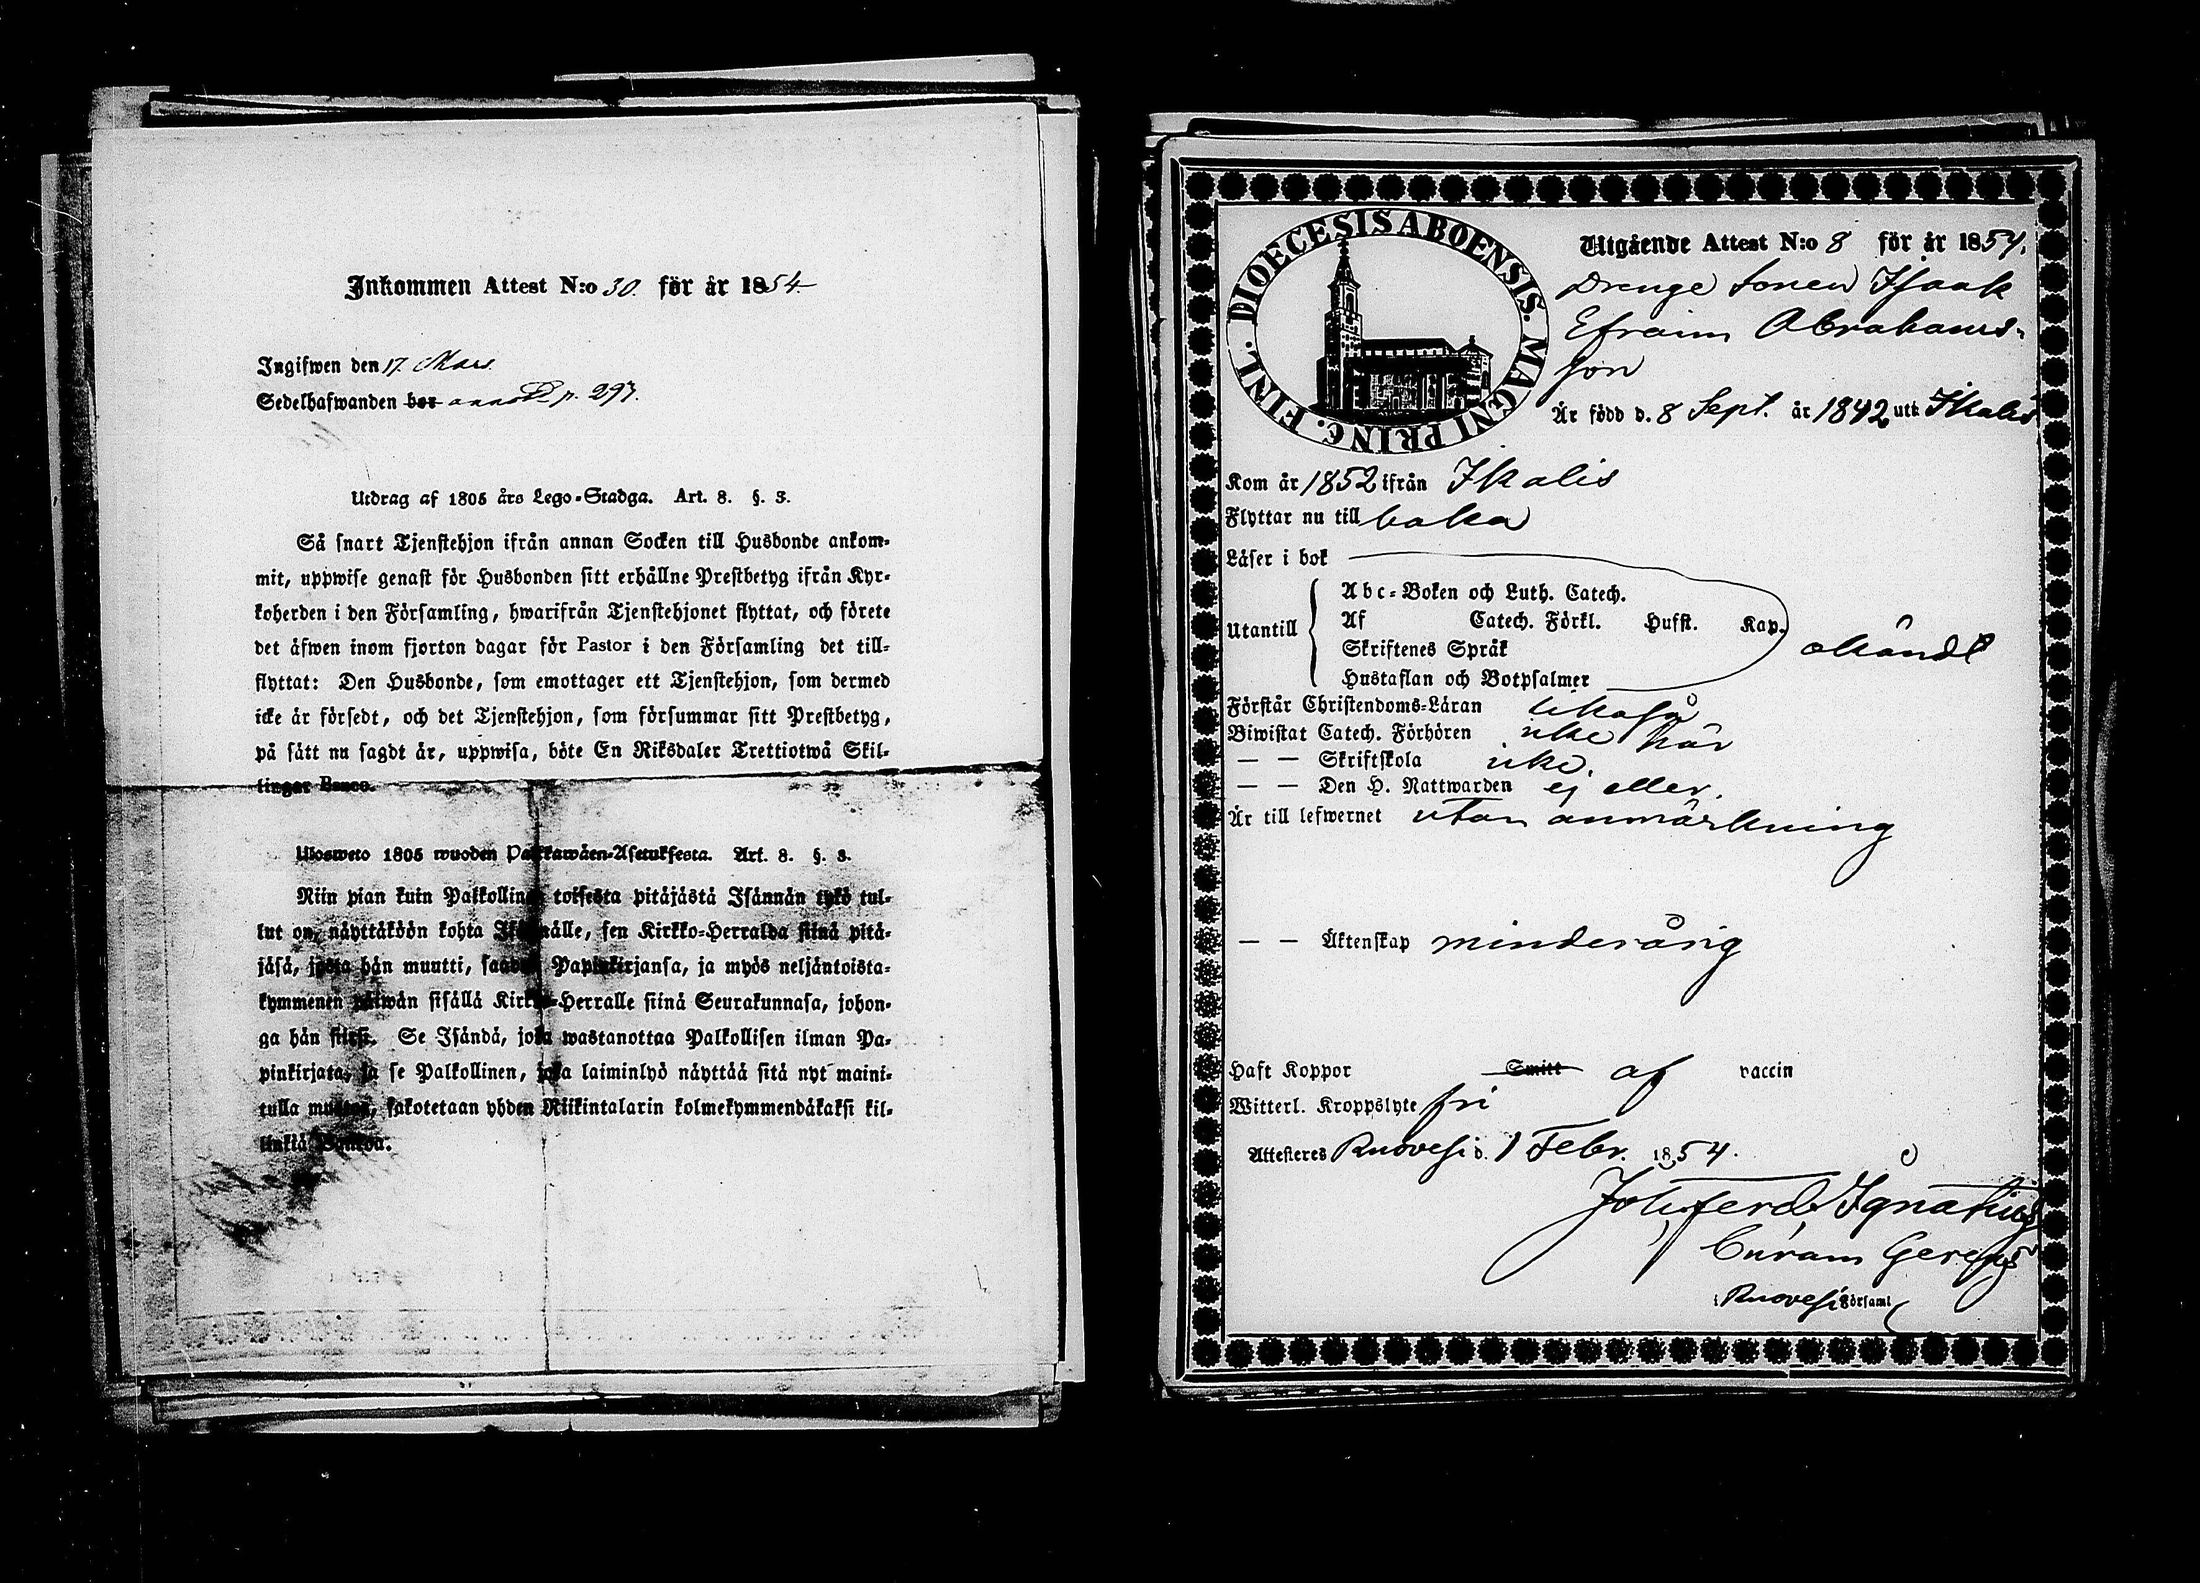 Inkommen Attest N:o 30. för år 1854
Ingifwen den 17. Mars.
Sedelhafwanden bor p. 297.
Utdrag af 1805 års Lego-Stadga. Art. 8. §. 3.
Så snart Tjenstehjon ifrån annan Socken till Husbonde ankom-
mit, uppwise genast för Husbonden sitt erhållne Prestbetyg ifrån Kyr-
koherden i den Församling, hwarifrån Tjenstehjonet flyttat, och förete
det äfwen inom fjorton dagar för Pastor i den Församling det till-
flyttat: Den Husbonde, som emottager ett Tjenstehjon, som dermed
icke är försedt, och det Tjenstehjon, som försummar sitt Prestbetyg,
på sätt nu sagdt är, uppwisa, böte En Riksdaler Trettiotwå Skil-
lingar Banco.
Ulosweto 1805 wuoden Palkkawäen-Asetuksesta. Art. 8. §. 3.
Niin pian kuin Palkollinen toisesta pitäjästä Isännän tykö tul-
lut on, näyttäköön kohta Isännälle, sen Kirkko-Herralda siinä pitä-
jäsä, josta hän muutti, saadun Papinkirjansa, ja myös neljäntoista-
kymmenen päiwän sisällä Kirkko-Herralle siinä Seurakunnasa, johon-
ga hän siirsi. Se Isändä, joka wastanottaa Palkollisen ilman Pa-
pinkirjata, ja se Palkollinen, joka laiminlyö näyttää sitä nyt maini-
tulla muodon, sakotetaan yhden Riikintalarin kolmekymmendäkaksi kil-
linkiä Bankoa.
DIOECESIS ABOENSIS. MAGNI PRINC. FINL.
Utgående Attest N:o 8 för år 1854.
Drenge Sonen Isaak
Efraim Abrahams-
son
Är född d. 8 Sept. år 1842 uti Ikalis
Kom år 1852 ifrån Ikalis
Flyttar nu till baka
Läser i bok
Utantill
Abc-Boken och Luth. Catech.
Af Catech. Förkl. Husst. Kap.
Skriftenes Språk
Hustaflan och Botpsalmer
okändt
Förstår Christendoms-Läran likaså
Biwistat Catech. Förhören icke här
— — Skriftskola icke.
— — Den H. Nattwarden ej eller.
Är till lefwernet utan anmärkning
— — Äktenskap minderårig
Haft Koppor Smitt af vaccin
Witterl. Kroppslyte fri
Attesteras Ruovesi d. 1 Febr. 1854.
Joh. Ferd. Ignatius
Curam Gerens
i Ruovesi Församl